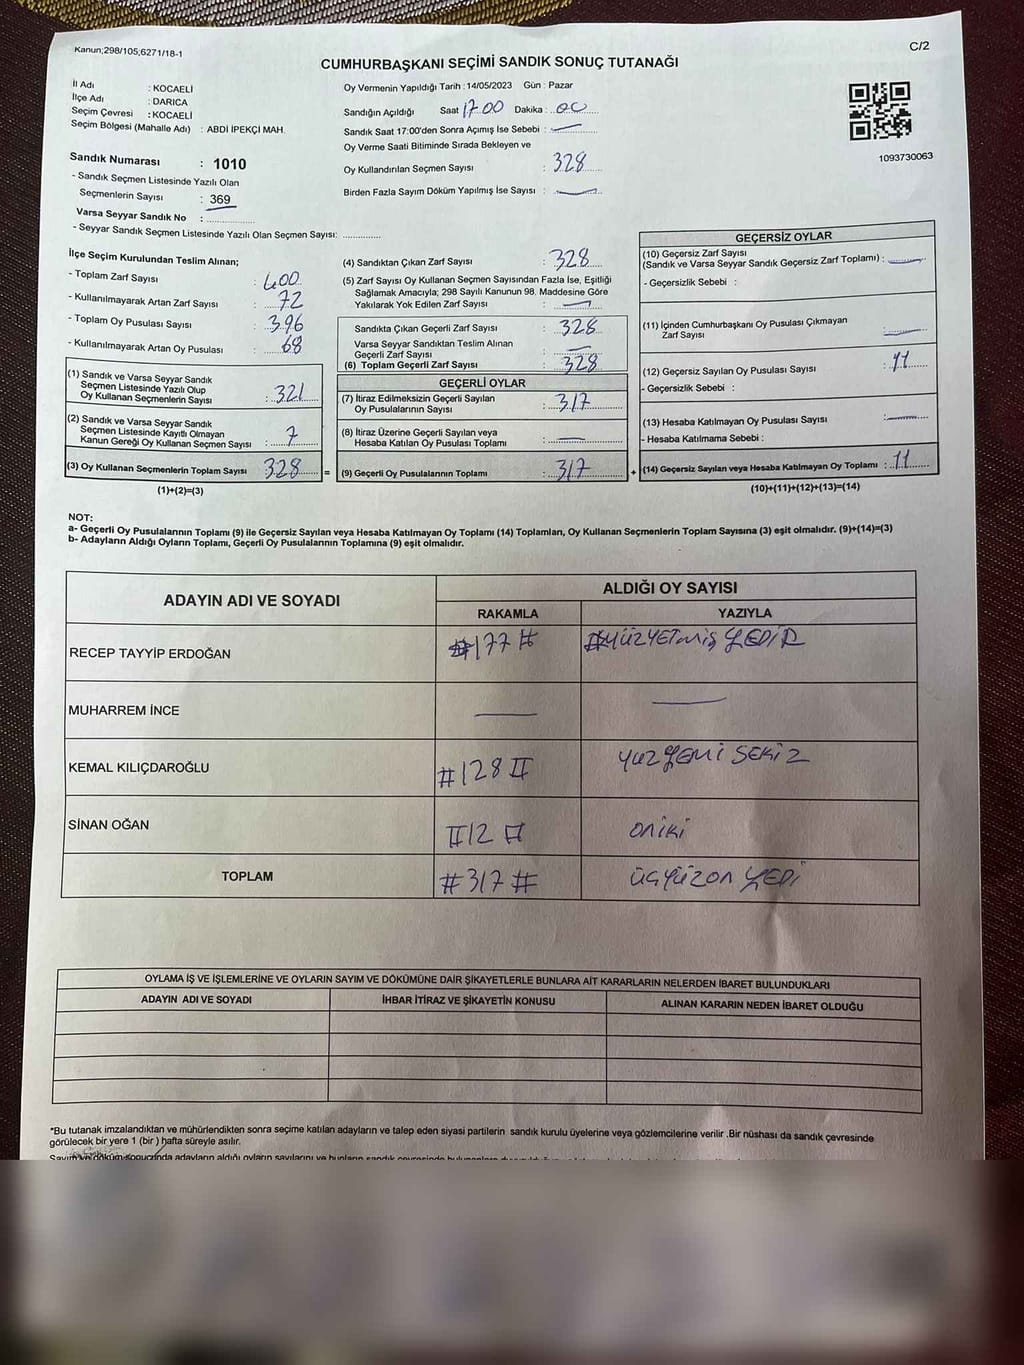 Kanun;298/105;6271/18-1
C/2
CUMHURBAŞKANI SEÇİMİ SANDIK SONUÇ TUTANAĞI
İl Adı : KOCAELİ
İlçe Adı : DARICA
Seçim Çevresi : KOCAELİ
Seçim Bölgesi (Mahalle Adı) : ABDİ İPEKÇİ MAH.
Sandık Numarası : 1010
- Sandık Seçmen Listesinde Yazılı Olan
Seçmenlerin Sayısı : 369
Varsa Seyyar Sandık No :
- Seyyar Sandık Seçmen Listesinde Yazılı Olan Seçmen Sayısı:
Oy Vermenin Yapıldığı Tarih : 14/05/2023 Gün : Pazar
Sandığın Açıldığı Saat 17 00 Dakika : 00
Sandık Saat 17:00'den Sonra Açımış İse Sebebi : —
Oy Verme Saati Bitiminde Sırada Bekleyen ve
Oy Kullandırılan Seçmen Sayısı : 328
Birden Fazla Sayım Döküm Yapılmış İse Sayısı : —
1093730063
İlçe Seçim Kurulundan Teslim Alınan;
- Toplam Zarf Sayısı : 400
- Kullanılmayarak Artan Zarf Sayısı : 72
- Toplam Oy Pusulası Sayısı : 396
- Kullanılmayarak Artan Oy Pusulası : 68
(1) Sandık ve Varsa Seyyar Sandık
Seçmen Listesinde Yazılı Olup
Oy Kullanan Seçmenlerin Sayısı : 321
(2) Sandık ve Varsa Seyyar Sandık
Seçmen Listesinde Kayıtlı Olmayan
Kanun Gereği Oy Kullanan Seçmen Sayısı : 7
(3) Oy Kullanan Seçmenlerin Toplam Sayısı 328 =
(1)+(2)=(3)
(4) Sandıktan Çıkan Zarf Sayısı : 328
(5) Zarf Sayısı Oy Kullanan Seçmen Sayısından Fazla İse, Eşitliği
Sağlamak Amacıyla; 298 Sayılı Kanunun 98. Maddesine Göre
Yakılarak Yok Edilen Zarf Sayısı : —
Sandıkta Çıkan Geçerli Zarf Sayısı : 328
Varsa Seyyar Sandıktan Teslim Alınan
Geçerli Zarf Sayısı : —
(6) Toplam Geçerli Zarf Sayısı : 328
GEÇERLİ OYLAR
(7) İtiraz Edilmeksizin Geçerli Sayılan
Oy Pusulalarının Sayısı : 317
(8) İtiraz Üzerine Geçerli Sayılan veya
Hesaba Katılan Oy Pusulası Toplamı : —
(9) Geçerli Oy Pusulalarının Toplamı : 317 +
GEÇERSİZ OYLAR
(10) Geçersiz Zarf Sayısı
(Sandık ve Varsa Seyyar Sandık Geçersiz Zarf Toplamı) : —
- Geçersizlik Sebebi :
(11) İçinden Cumhurbaşkanı Oy Pusulası Çıkmayan
Zarf Sayısı : —
(12) Geçersiz Sayılan Oy Pusulası Sayısı : 11
- Geçersizlik Sebebi :
(13) Hesaba Katılmayan Oy Pusulası Sayısı : —
- Hesaba Katılmama Sebebi :
(14) Geçersiz Sayılan veya Hesaba Katılmayan Oy Toplamı : 11
(10)+(11)+(12)+(13)=(14)
NOT:
a- Geçerli Oy Pusulalarının Toplamı (9) ile Geçersiz Sayılan veya Hesaba Katılmayan Oy Toplamı (14) Toplamları, Oy Kullanan Seçmenlerin Toplam Sayısına (3) eşit olmalıdır. (9)+(14)=(3)
b- Adayların Aldığı Oyların Toplamı, Geçerli Oy Pusulalarının Toplamına (9) eşit olmalıdır.
ADAYIN ADI VE SOYADI
ALDIĞI OY SAYISI
RAKAMLA YAZIYLA
RECEP TAYYİP ERDOĞAN #177# #YÜZYETMİŞ YEDİR
MUHARREM İNCE — —
KEMAL KILIÇDAROĞLU #128# YUZYEMİ SEKİZ
SİNAN OĞAN #12# ONİKİ
TOPLAM #317# ÜÇYÜZON YEDİ
OYLAMA İŞ VE İŞLEMLERİNE VE OYLARIN SAYIM VE DÖKÜMÜNE DAİR ŞİKAYETLERLE BUNLARA AİT KARARLARIN NELERDEN İBARET BULUNDUKLARI
ADAYIN ADI VE SOYADI İHBAR İTİRAZ VE ŞİKAYETİN KONUSU ALINAN KARARIN NEDEN İBARET OLDUĞU
*Bu tutanak imzalandıktan ve mühürlendikten sonra seçime katılan adayların ve talep eden siyasi partilerin sandık kurulu üyelerine veya gözlemcilerine verilir .Bir nüshası da sandık çevresinde
görülecek bir yere 1 (bir ) hafta süreyle asılır.